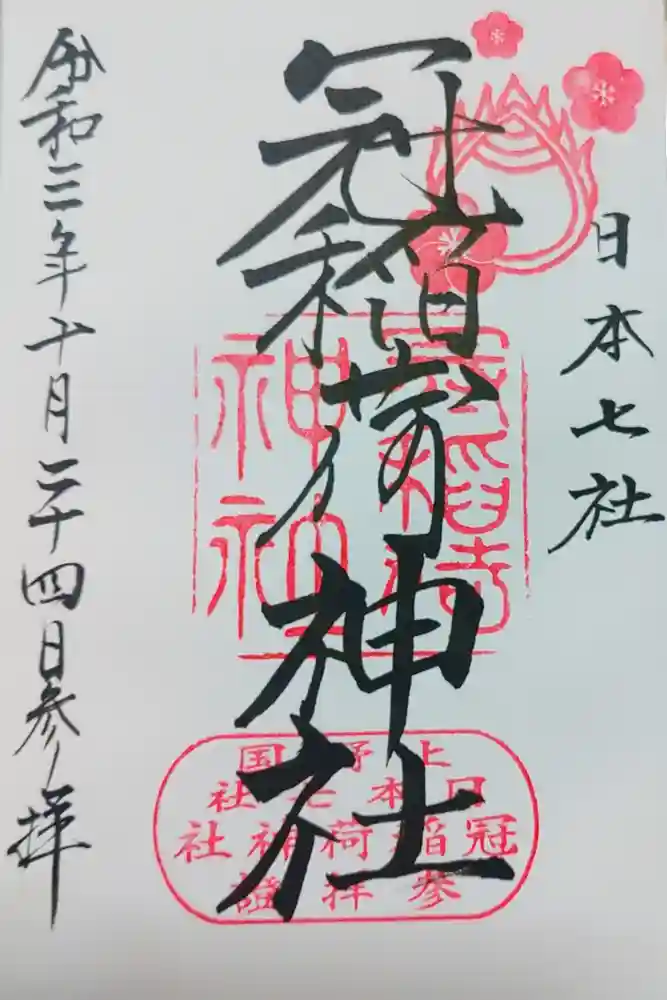 日本七社
冠稲荷神社
令和三年十月二十四日参拝
冠稲荷
神社
上野国
日本七社
冠稲荷神社
參拝證